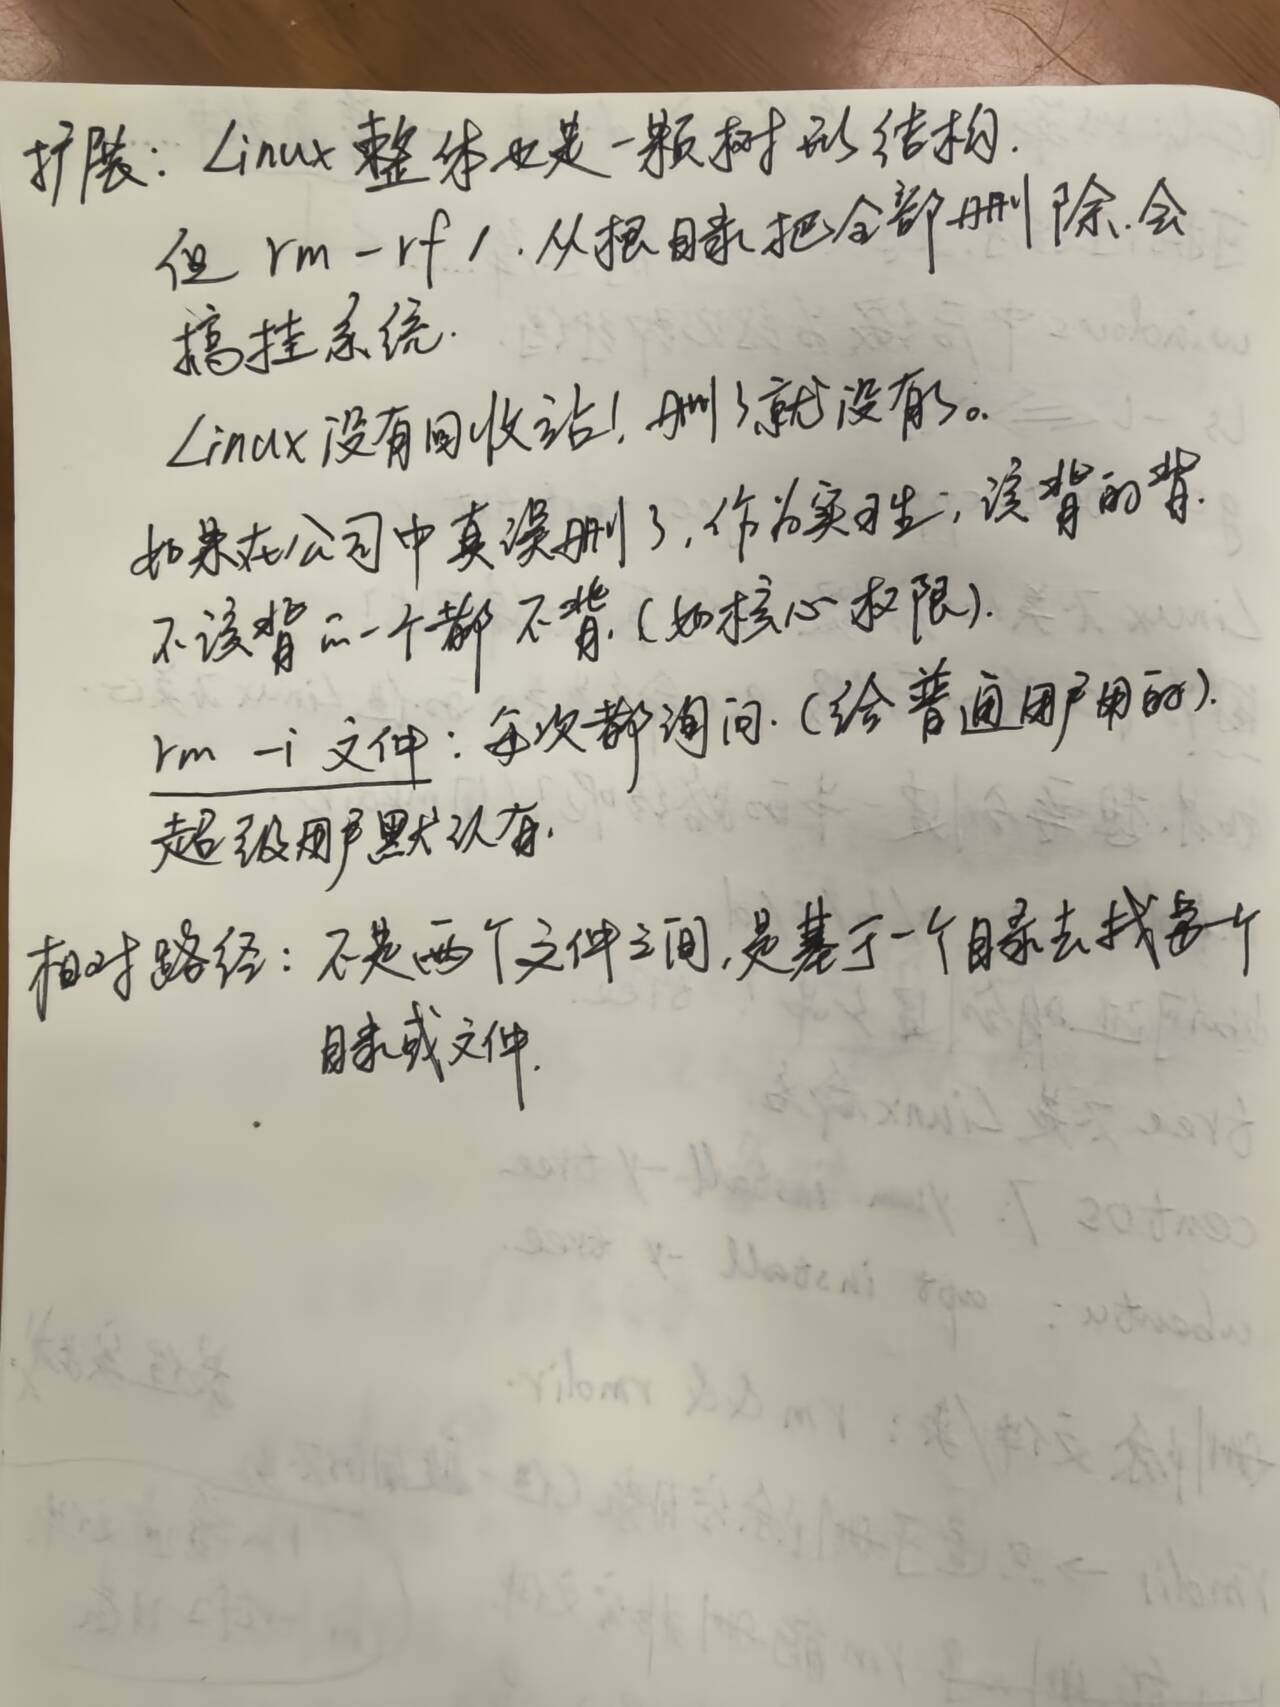 扩展：Linux 整体也是一颗树形结构.
但 rm -rf /. 从根目录把全部删除.会
搞挂系统.
Linux没有回收站！删了就没有了。
如果在公司中真误删了,作为实习生,该背的背.
不该背的一个都不背.(如核心权限).
rm -i 文件：每次都询问.(给普通用户用的).
超级用户默认有.
相对路径：不是两个文件之间,是基于一个目录去找另一个
目录或文件.